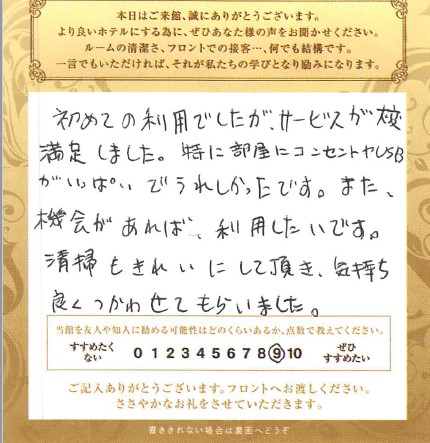 本日はご来館、誠にありがとうございます。
より良いホテルにする為に、ぜひあなた様の声をお聞かせください。
ルームの清潔さ、フロントでの接客…、何でも結構です。
一言でもいただければ、それが私たちの学びとなり励みになります。
初めての利用でしたが、サービスが大変
満足しました。特に部屋にコンセントやUSB
がいっぱいでうれしかったです。また、
機会があれば、利用したいです。
清掃もきれいにして頂き、気持ち
良くつかわせてもらいました。
当館を友人や知人に勧める可能性はどのくらいあるか、点数で教えてください。
すすめたくない 0 1 2 3 4 5 6 7 8 9 10 ぜひすすめたい
ご記入ありがとうございます。フロントへお渡しください。
ささやかなお礼をさせていただきます。
書ききれない場合は裏面へどうぞ